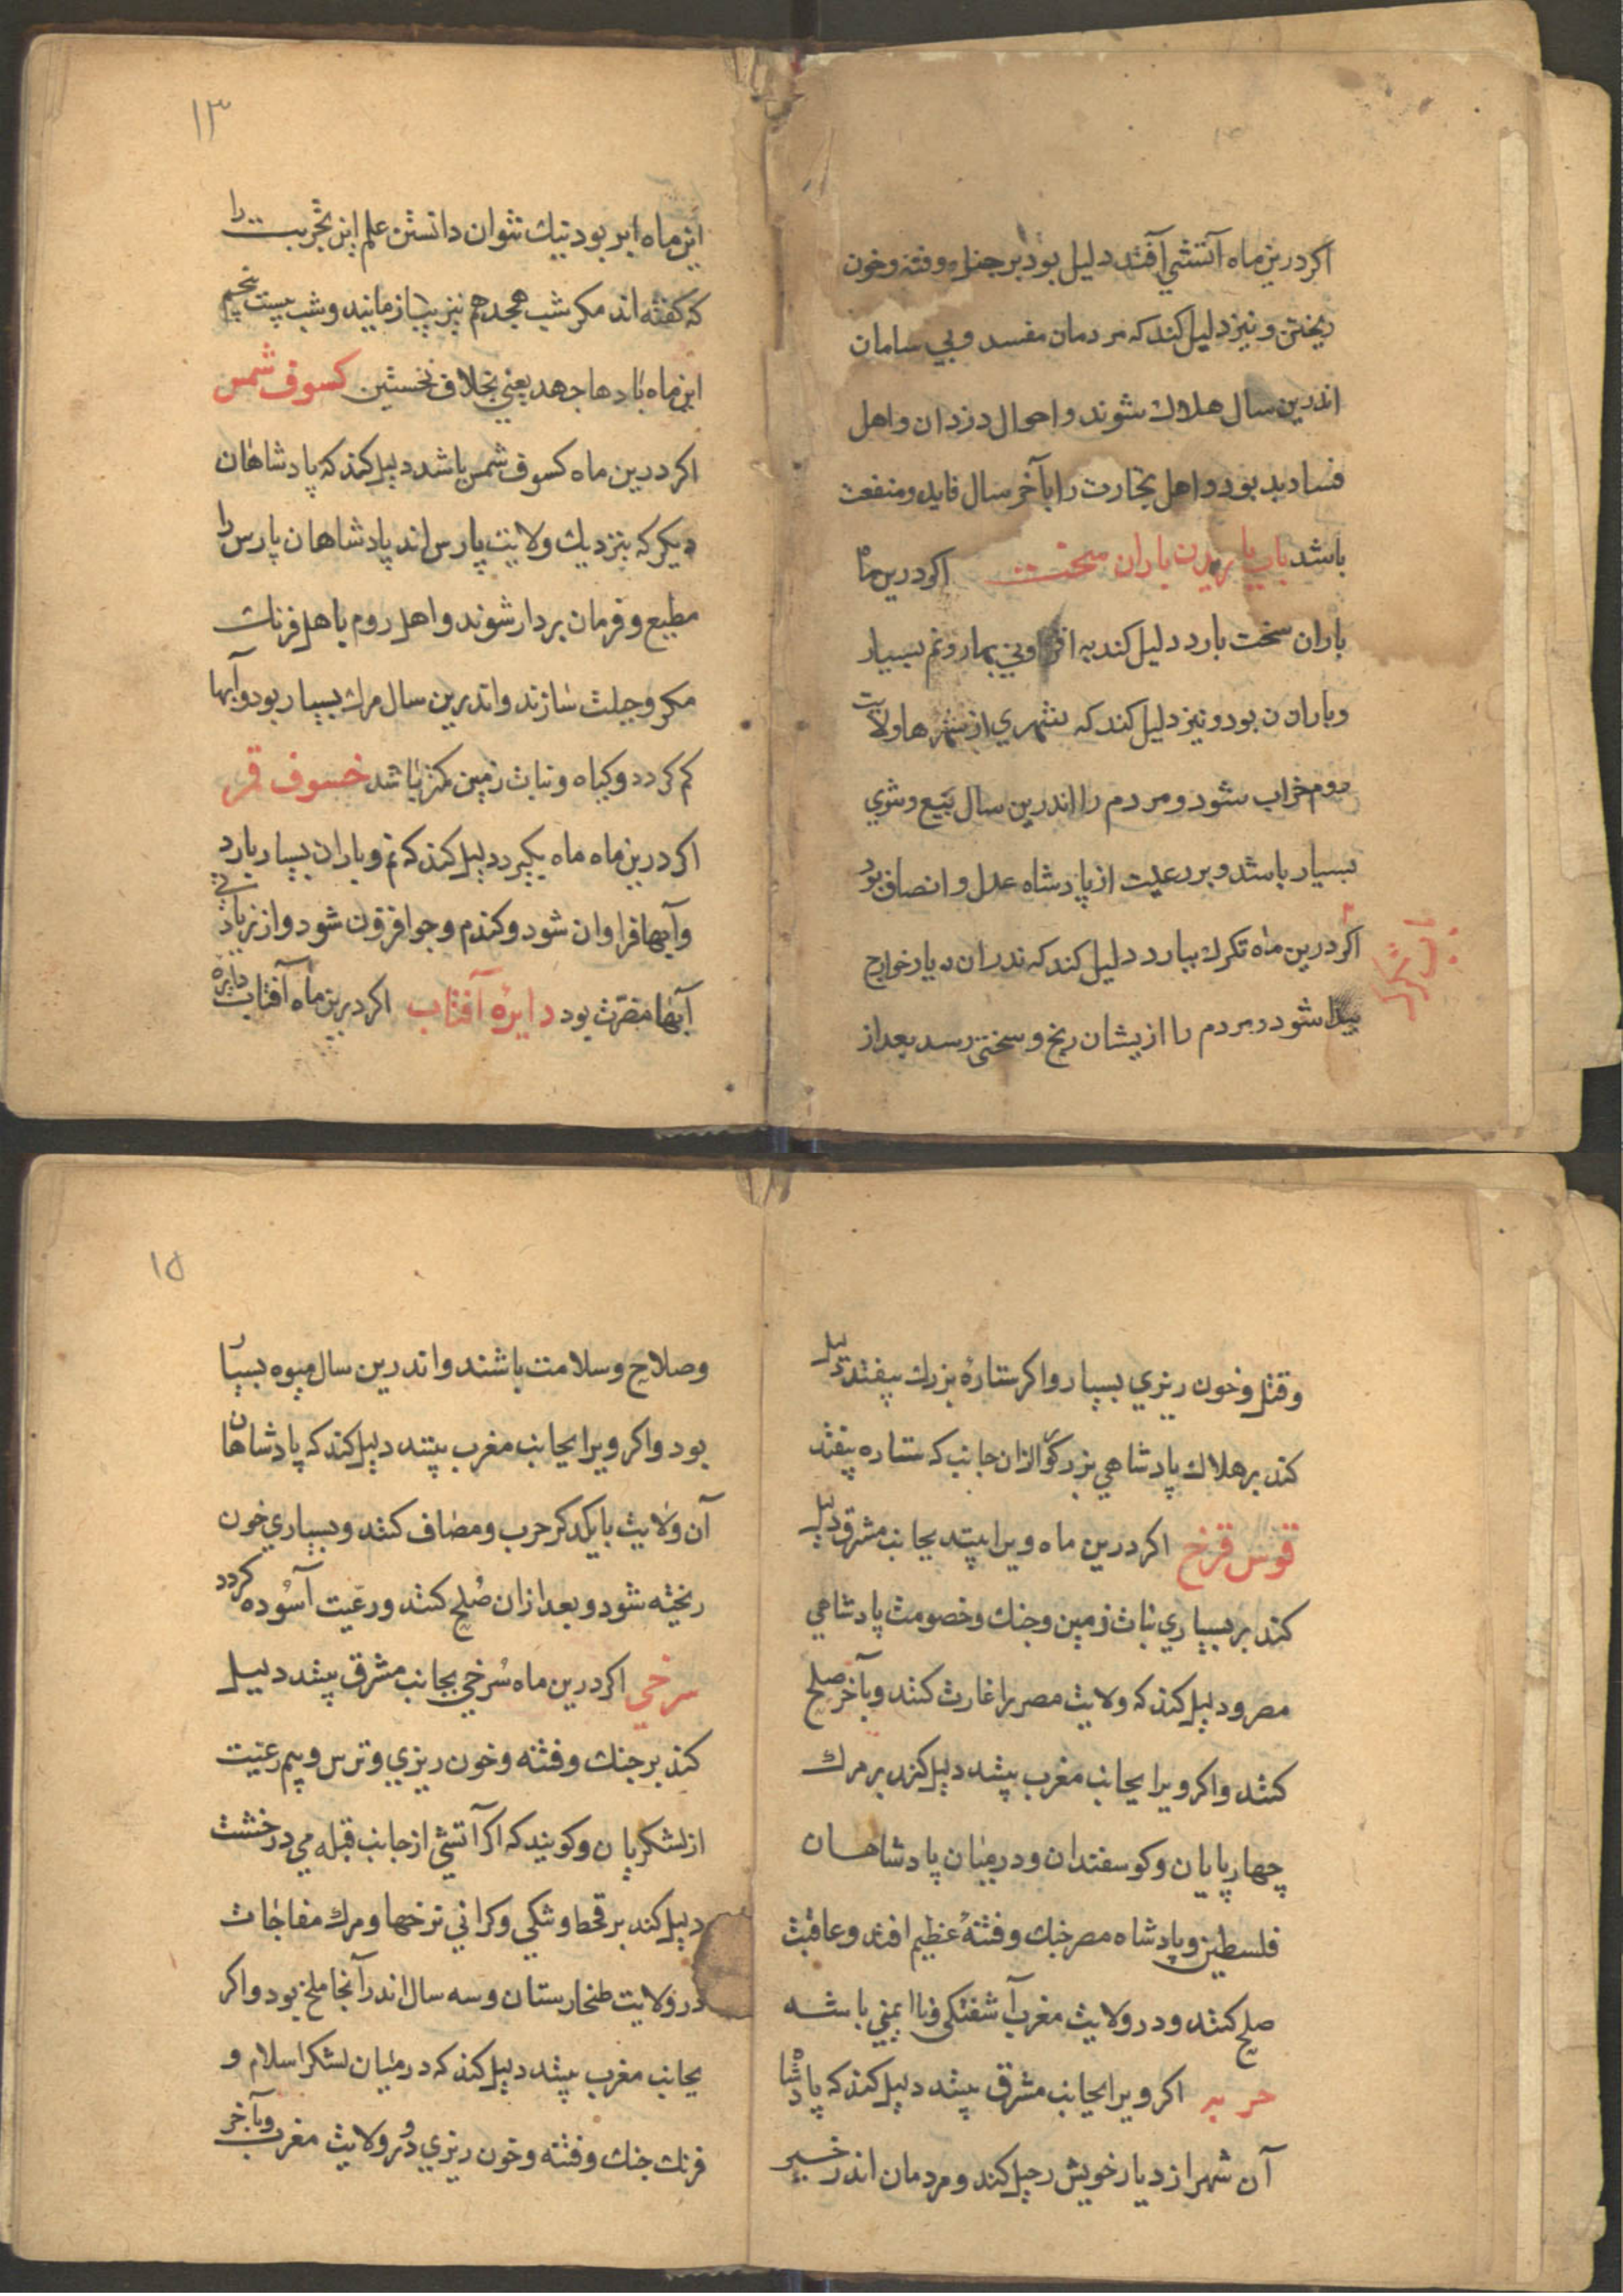 اکر درین ماه آتشی آفتد دلیل بود بر جنك و فتنه و خون
ریختن و نیز دلیل کند که مردمان مفسد و بي سامان
اندرین سال هلاك شوند و احوال دزدان و اهل
فساد بد بود و اهل تجارت را بآخر سال فایده و منفعت
باشد باب باریدن باران سخت اکر درین ماه
باران سخت بارد دلیل کند به افراوني بیمار و نم بسیار
و باران بود و نیز دلیل کند که شهري از شهرها ولایت
روم خراب شود و مردم را اندرین سال بیع و شري
بسیار باشد و بر رعیت از پادشاه عدل و انصاف بود
اکر درین ماه تکرك ببارد دلیل کند که ندران دیار خوارج
باب تکرك
پیدا شود و مردم را ازیشان رنج و سختی رسد بعد از
۱۳
این ماه ابر بود نیك نتوان دانستن علم این تجربت را
که کفته اند مکر شب هجدهم نیز بیازمایند و شب بیست پنجم
این ماه بادها جهد یعني بخلاف نخستین کسوف شمس
اکر درین ماه کسوف شمس باشد دلیل کند که پادشاهان
دیکر که بنزدیك ولایت پارس اند پادشاهان پارس را
مطیع و فرمان بردار شوند و اهل روم با هل فرنك
مکر و حیلت سازند و اندرین سال مرك بسیار بود و آبها
کم کردد و کیاه و نبات زمین کمتر باشد خسوف قمر
اکر درین ماه ماه بکیرد دلیل کند که نم و باران بسیار بارد
و آبها فراوان شود و کندم و جو افزون شود و از زیادتي
آبها مضرت بود دایرهٔ آفتاب اکر درین ماه آفتاب دایره
و قتل و خون ریزي بسیار و اکر ستارهٔ بزرك بیفتد دلیل
کند بر هلاك پادشاهي بزرکوار ازان جانب که ستاره بیفتد
قوس قزح اکر درین ماه ویرا بیند بجانب مشرق دلیل
کند بر بسیاري نبات زمین و جنك و خصومت پادشاهي
مصر و دلیل کند که ولایت مصر را غارت کنند و بآخر صلح
کنند و اکر ویرا بجانب مغرب بیند دلیل کند بر مرك
چهارپایان و کوسفندان و در میان پادشاهان
فلسطین و پادشاه مصر جنك و فتنهٔ عظیم افتد و عاقبت
صلح کنند و در ولایت مغرب آشفتکی و نا ایمني باشد
حربه اکر ویرا بجانب مشرق بیند دلیل کند که پادشاه
آن شهر از دیار خویش رحیل کند و مردمان اندر خیر
۱۵
و صلاح و سلامت باشند و اندرین سال میوه بسیار
بود و اکر ویرا بجانب مغرب بیند دلیل کند که پادشاهان
آن ولایت با یکدکر حرب و مصاف کنند و بسیاري خون
ریخته شود و بعد ازان صُلح کنند و رعیت آسُوده کردد
سرخي اکر درین ماه سُرخي بجانب مشرق بیند دلیل
کند بر جنك و فتنه و خون ریزي و ترس و بیم رعیت
از لشکریان و کویند که اکر آتشي از جانب قبله مي درخشد
دلیل کند بر قحط و تنکي و کراني نرخها و مرك مفاجات
در ولایت طخارستان و سه سال اندر آنجا ملخ بود و اکر
بجانب مغرب بیند دلیل کند که در میان لشکر اسلام و
فرنك جنك و فتنه و خون ریزي و در ولایت مغرب و بآخر